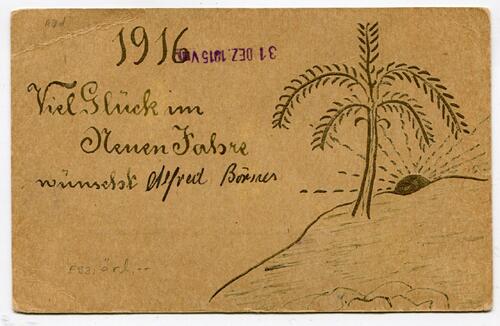 1916
31 DEZ. 1915 Vm
Viel Glück im
Neuen Jahre
wünscht Alfred Börner